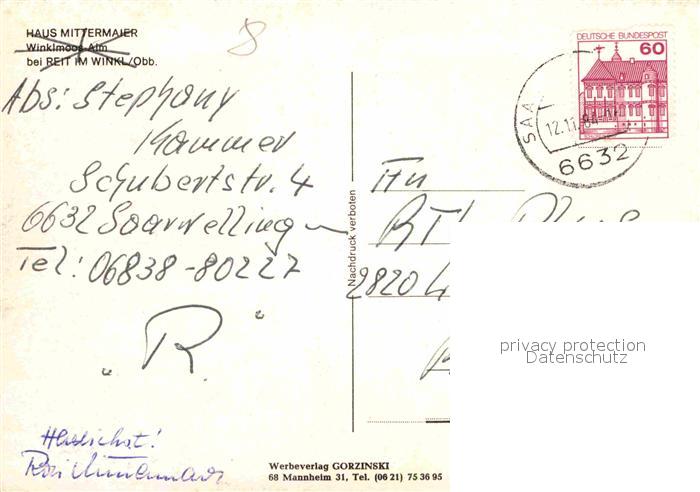 HAUS MITTERMAIER
Winklmoos-Alm
bei REIT IM WINKL/Obb.
Abs: Stephany
Kammer
Schubertstr. 4
6632 Saarwellingen
Tel: 06838-80227
"R"
Werbeverlag GORZINSKI
68 Mannheim 31, Tel. (06 21) 75 36 95
Nachdruck verboten
DEUTSCHE BUNDESPOST
60
SAA
12.11.84
6632
An
2820
privacy protection
Datenschutz